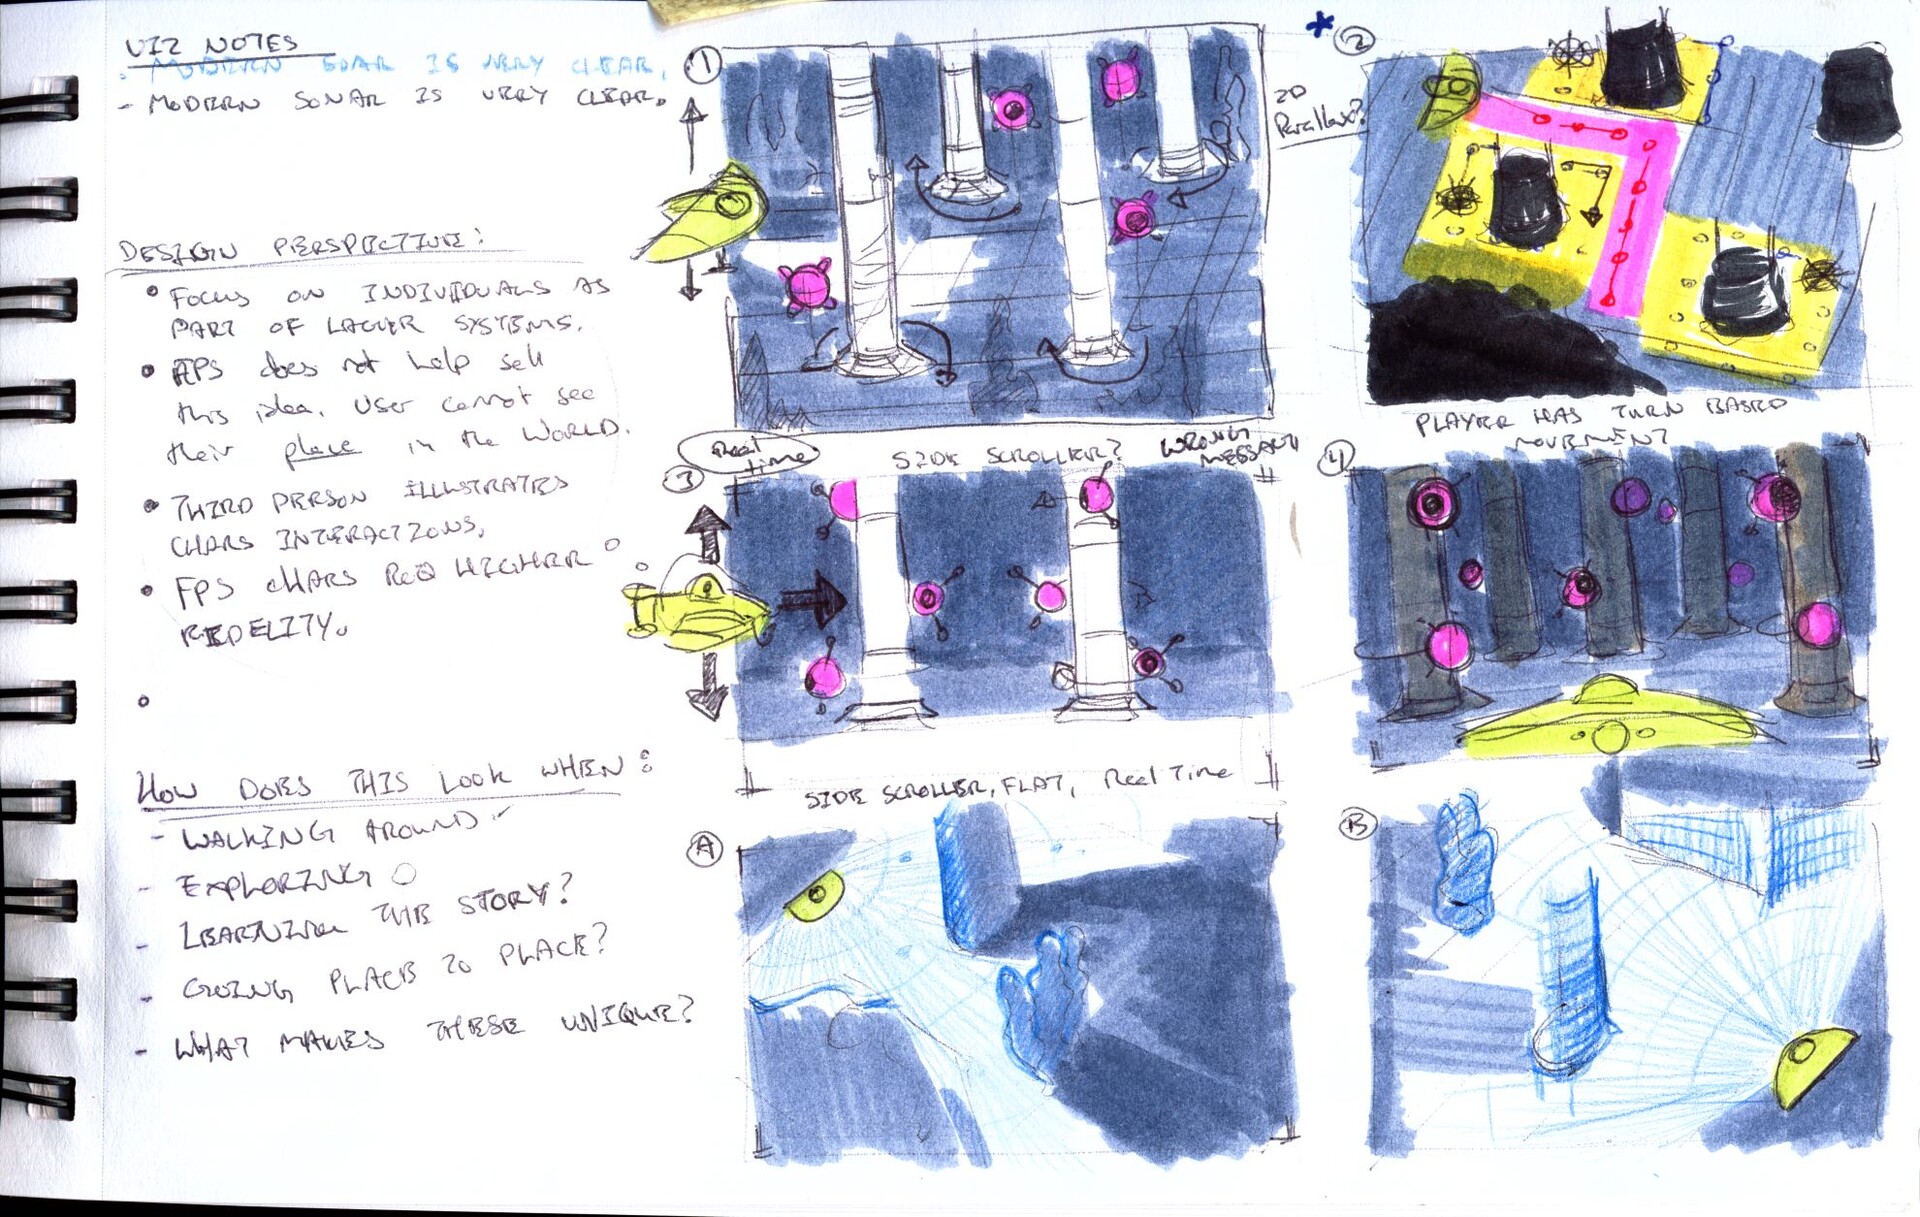 VIZ NOTES
- MODERN SONAR IS VERY CLEAR.
- MODERN SONAR IS VERY CLEAR.
DESIGN PERSPECTIVE:
• FOCUS ON INDIVIDUALS AS
PART OF LARGER SYSTEMS.
• FPS does not help sell
this idea. User cannot see
their place in the WORLD.
• THIRD PERSON ILLUSTRATES
CHARS INTERACTIONS.
• FPS CHARS REQ HIGHER
FIDELITY.
HOW DOES THIS LOOK WHEN:
- WALKING AROUND
- EXPLORING
- LEARNING THE STORY?
- GOING PLACE TO PLACE?
- WHAT MAKES THESE UNIQUE?
1
Real time
SIDE SCROLLER?
WRONG MESSAGE
* 2
2D
Parallax?
PLAYER HAS TURN BASED
MOVEMENT
3
SIDE SCROLLER, FLAT, Real Time
4
A
B